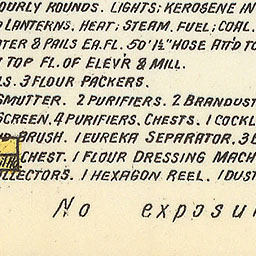 OURLY ROUNDS. LIGHTS; KEROSENE IN
LANTERNS. HEAT; STEAM. FUEL; COAL.
TER & PAILS EA. FL. 50' 1½" HOSE ATT'D TO
TOP FL. OF ELEV'R & MILL.
LS. 3 FLOUR PACKERS.
SMUTTER. 2 PURIFIERS. 2 BRANDUST
SCREEN. 4 PURIFIERS. CHESTS. 1 COCKL
BRUSH. 1 EUREKA SEPARATOR. 3
CHEST. 1 FLOUR DRESSING MACH
LLECTORS. 1 HEXAGON REEL. 1 DUST
No exposu